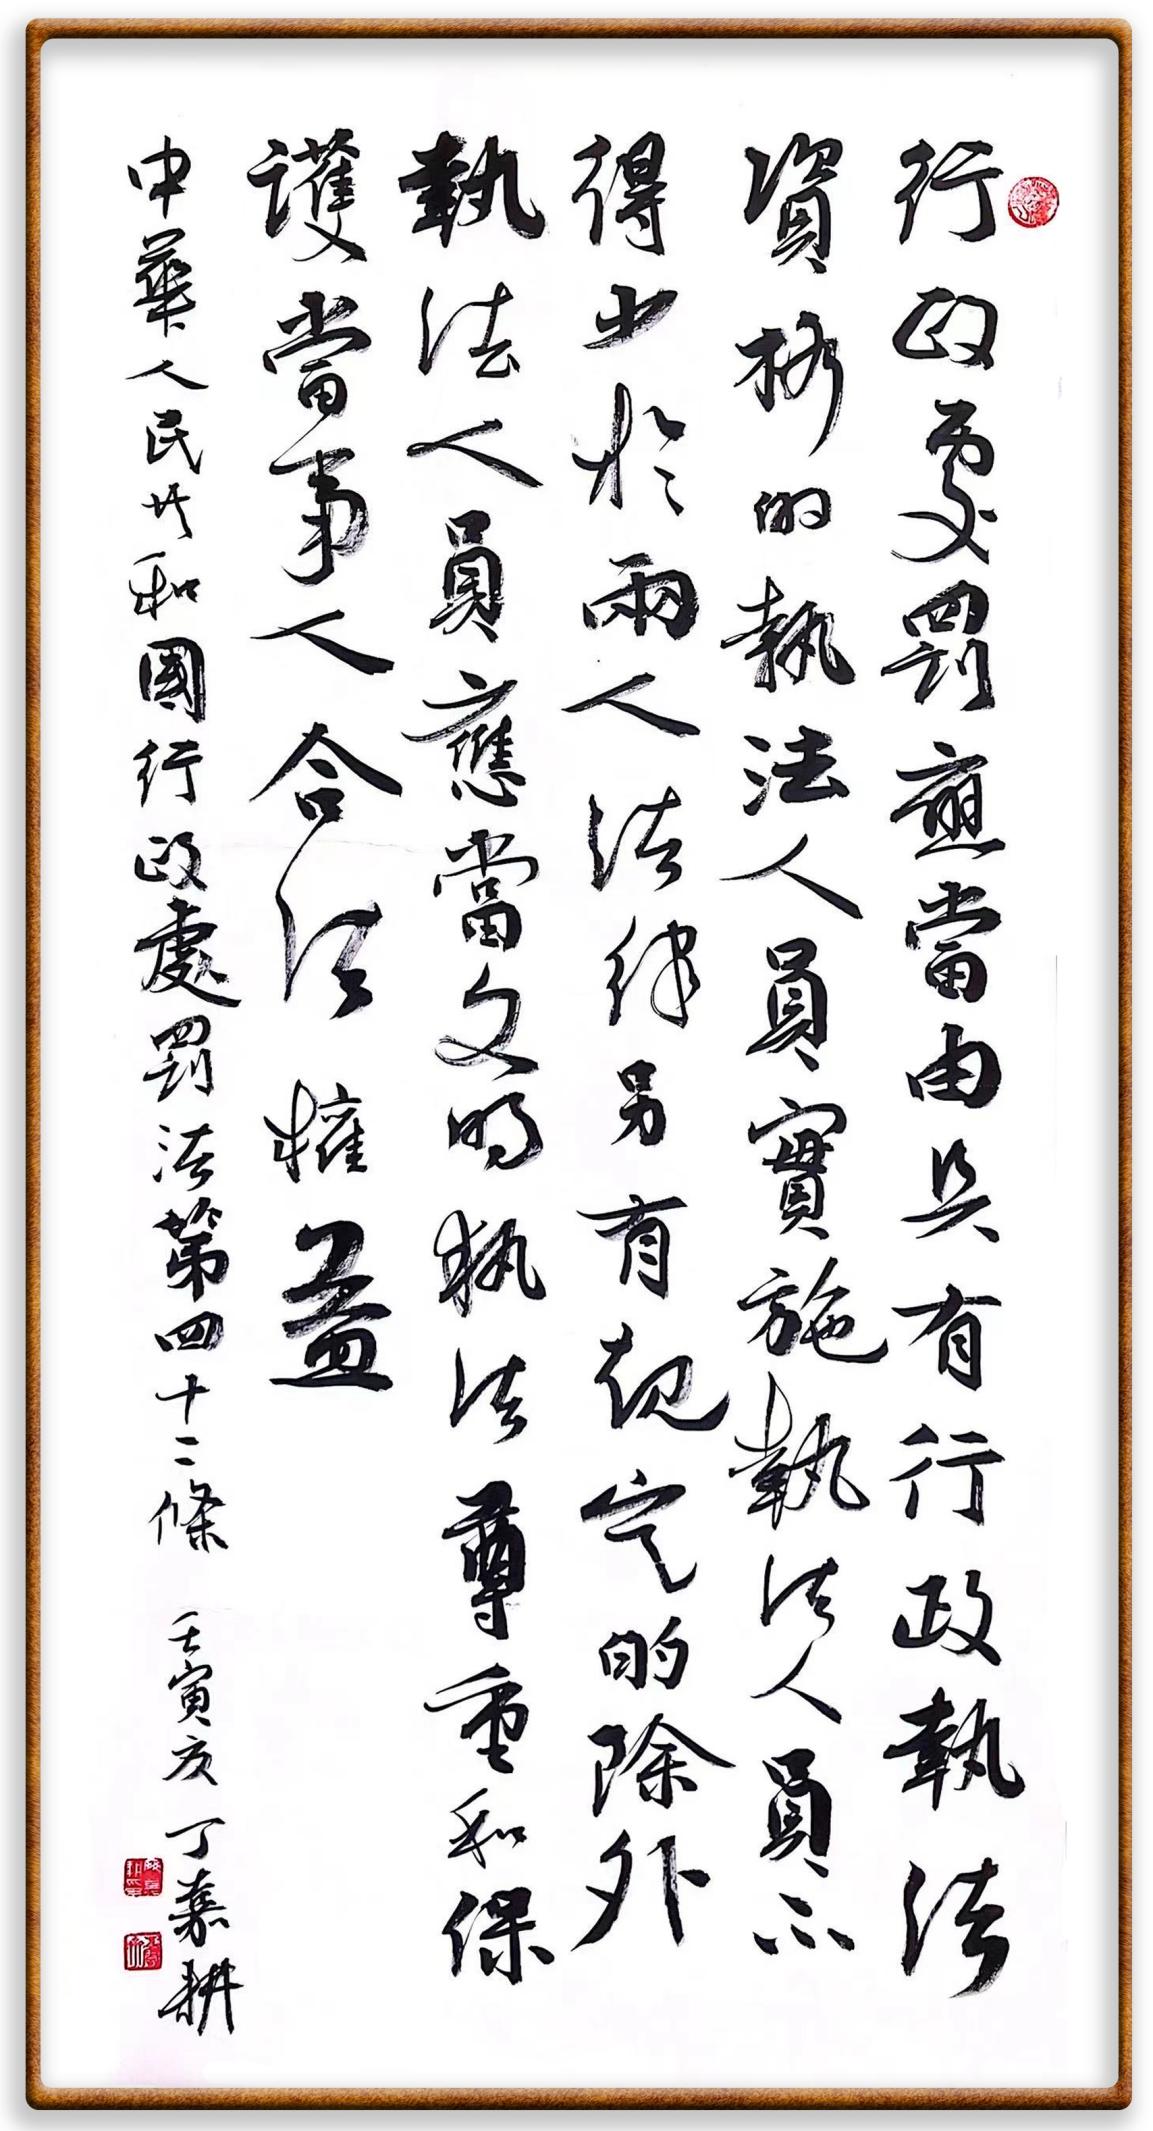 行政處罰應當由具有行政執法
資格的執法人員實施執法人員不
得少於兩人法律另有規定的除外
執法人員應當文明执法尊重和保
護當事人合法權益
中華人民共和國行政處罰法第四十二條 壬寅夜 丁嘉耕